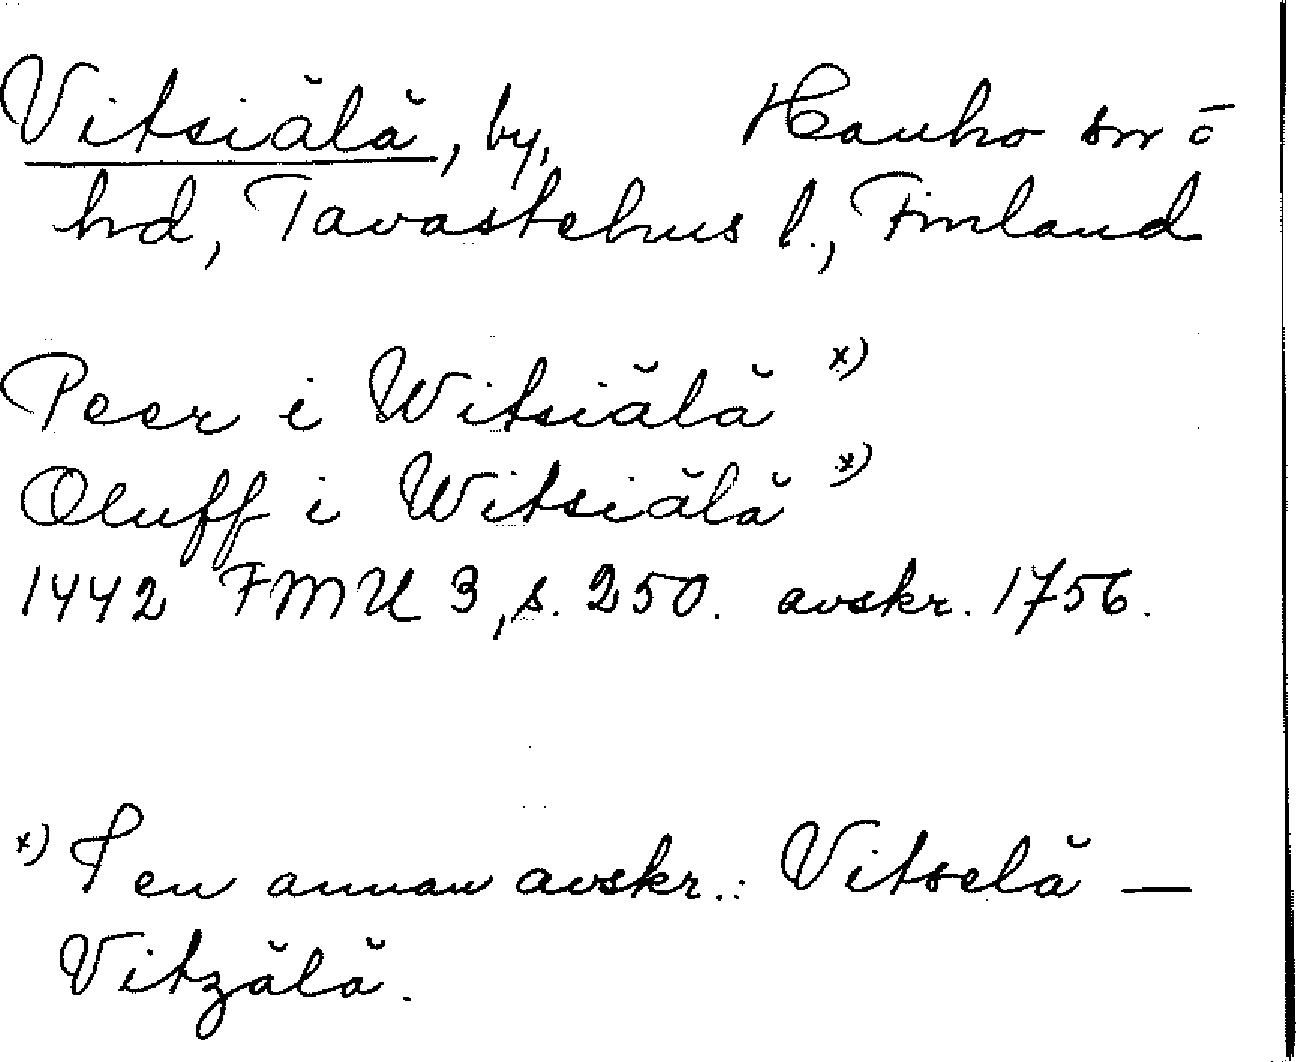 Vitsiälä, by, Hauho sn o
hd, Tavastehus l., Finland
Peer i Witsiälä x)
Oluff i Witsiälä x)
1442 FMU 3, s. 250. avskr. 1756.
x) I en annan avskr.: Vitselä —
Vitzälä.